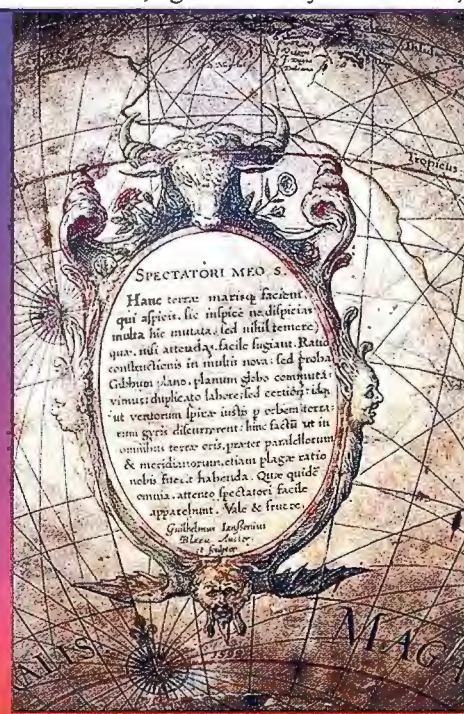 Tropicus
SPECTATORI MEO S.
Hanc terræ marisq; faciem,
qui aspicis, sic inspice ne dispicias:
multa hic mutata, sed nihil temere;
quæ, nisi attendas, facile fugiant. Ratio
constructionis in multis nova: sed proba
Globum plano, planum globo commutá:
vimus: duplicato labore, sed certiori: idq.
ut ventorum spiræ iustis p orbem terra:
rum gyris discurrerent: hinc factū ut in
omnibus terræ oris, præter parallelorum
& meridianorum, etiam plagæ ratio
nobis fuerit habenda. Quæ quidē
omnia, attento spectatori facile
apparebunt. Vale & fruere.
Guilhelmus Ianssonius
Blaeu Auctor
et sculptor
ALIS
MAGA